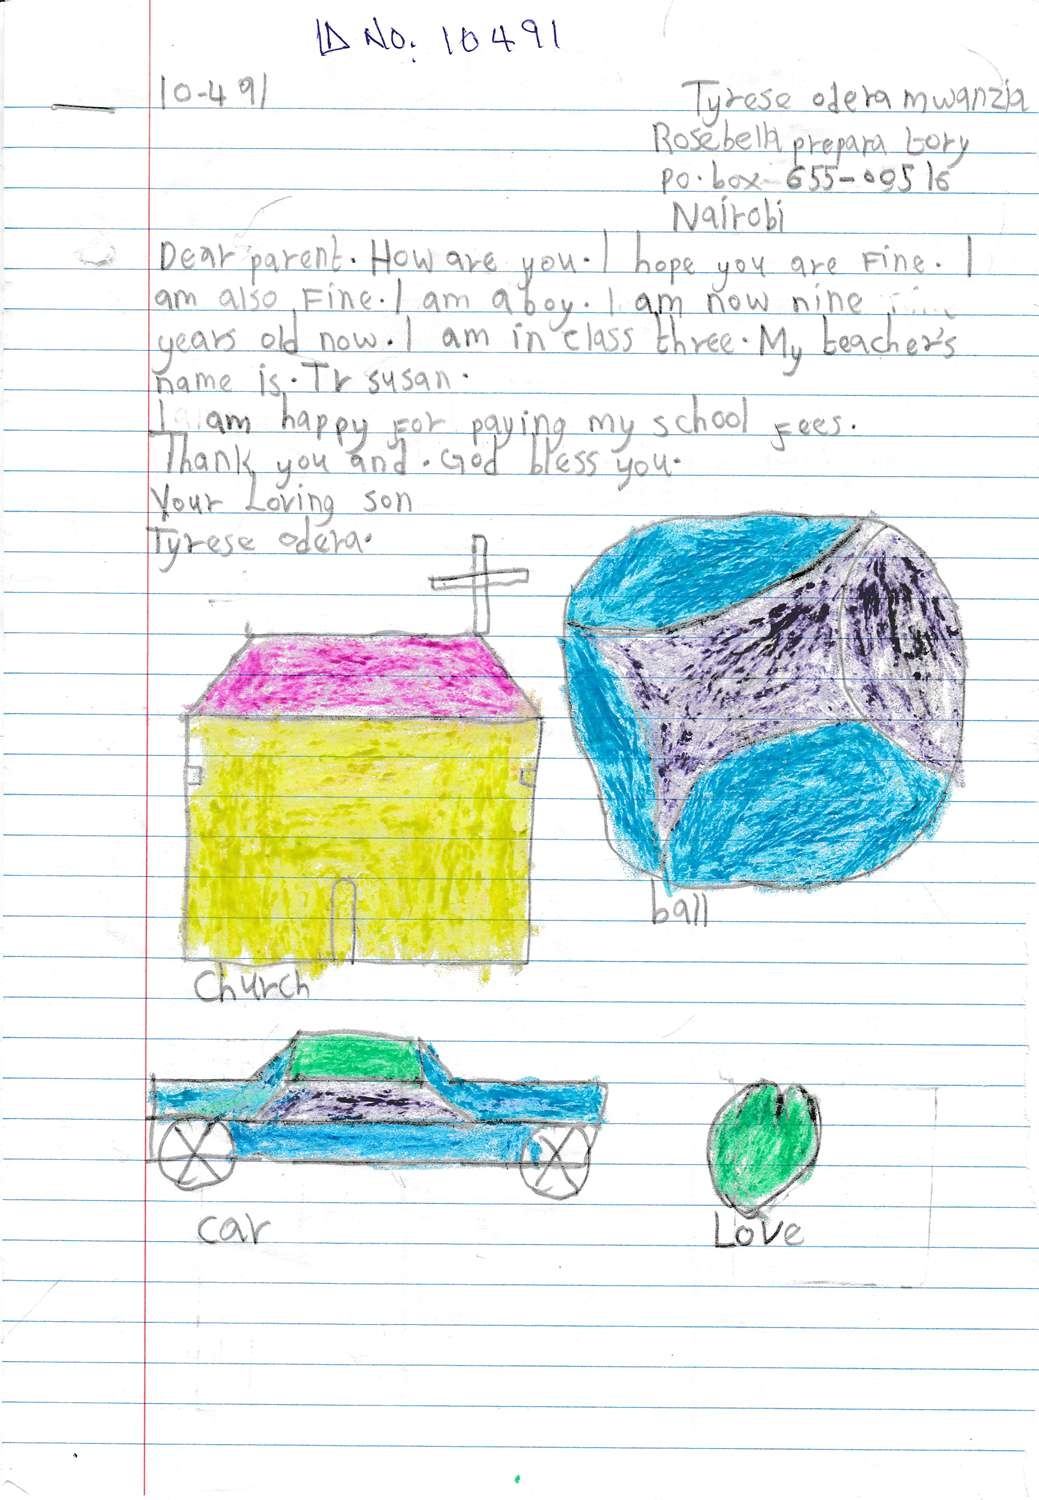 ID NO: 10491
10-491
Tyrese odera mwanzia
Rosebella prepara tory
po.box-655-00516
Nairobi
Dear parent. How are you. I hope you are Fine. I
am also Fine. I am a boy. I am now nine
years old now. I am in class three. My teacher's
name is. Tr susan.
I am happy For paying my school Fees.
Thank you and. God bless you.
Your Loving son
Tyrese odera.
ball
Church
car
Love